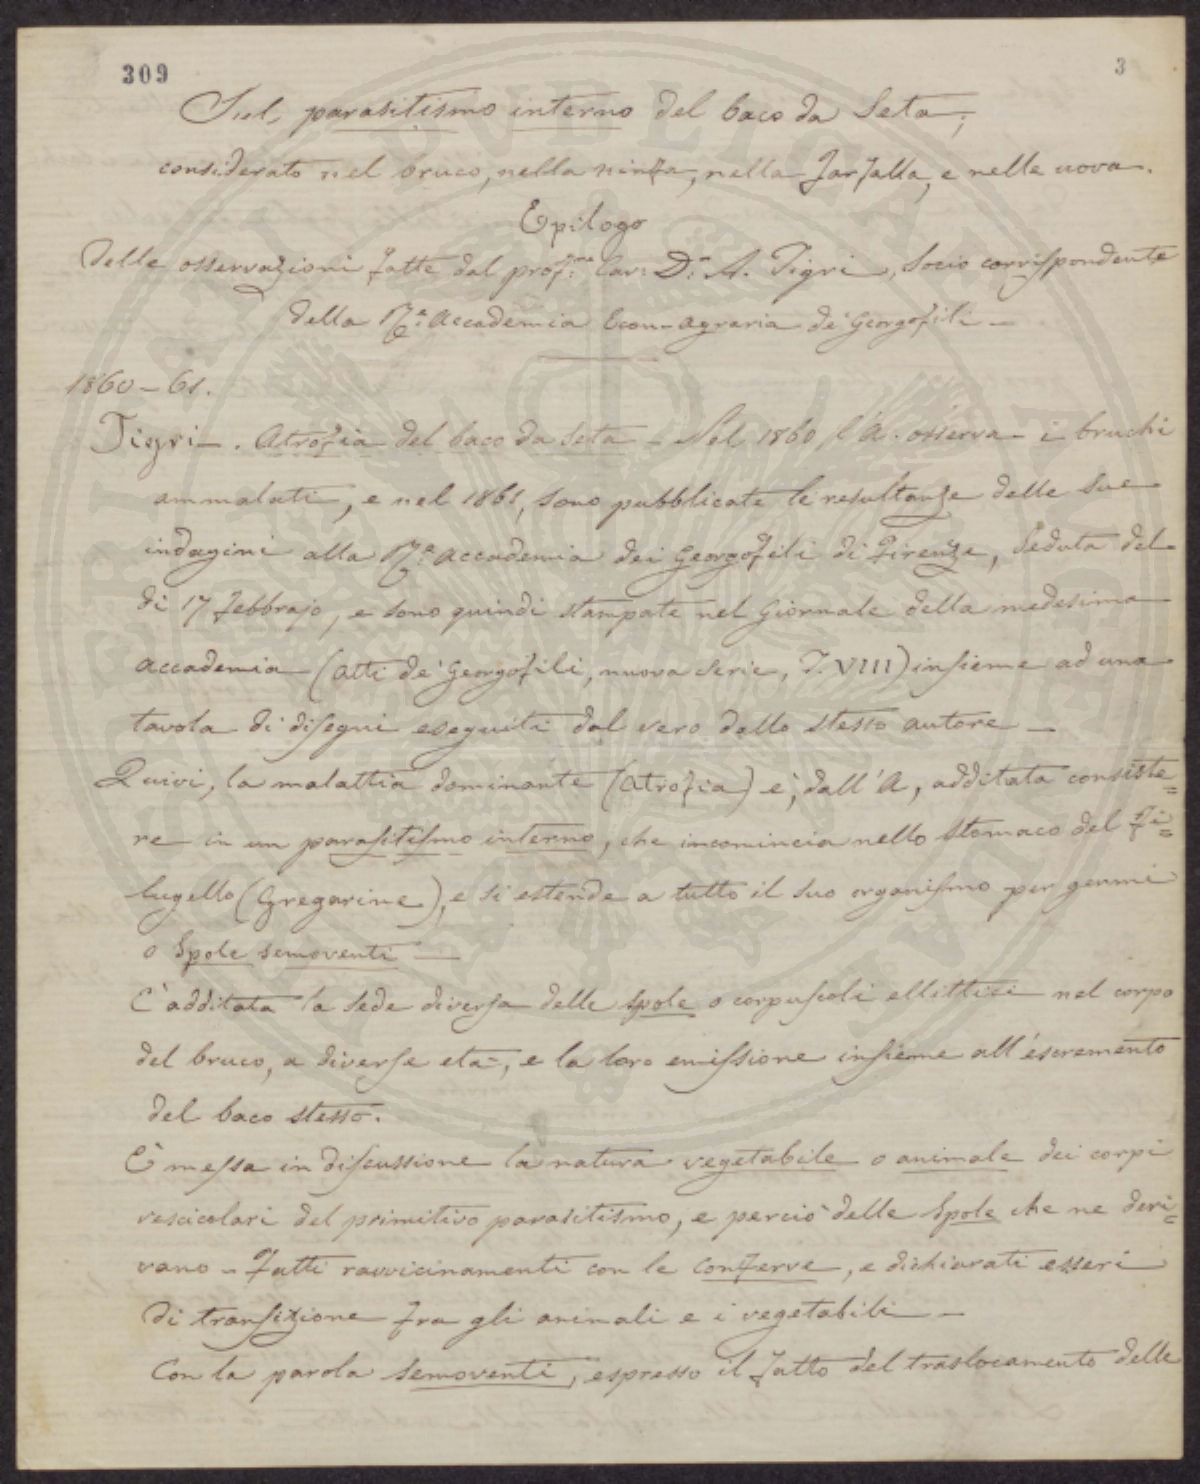 309
3
Sul parasitismo interno del baco da Seta;
considerato nel bruco, nella ninfa, nella farfalla, e nelle uova.
Epilogo
delle osservazioni fatte dal prof:re Cav: D.r A. Tigri, Socio corrispondente
della R.e Accademia Econ-agraria de' Georgofili —
1860 – 61.
Tigri — . Atrofia del baco da Seta — Nel 1860 l'A. osserva i bruchi
ammalati, e nel 1861, sono pubblicate le resultanze delle sue
indagini alla R.e Accademia dei Georgofili di Firenze, Seduta del
dì 17 febbrajo, e sono quindi stampate nel Giornale della medesima
accademia (Atti de' Georgofili, nuova Serie, T. VIII) insieme ad una
tavola di disegni eseguiti dal vero dallo stesso autore —
Quivi, la malattia dominante (Atrofia) è, dall'A, additata consiste=
re in un parasitismo interno, che incomincia nello stomaco del fi=
lugello (Gregarine), e si estende a tutto il suo organismo per germi
o Spole semoventi —
È additata la sede diversa delle spole o corpuscoli ellittici nel corpo
del bruco, a diverse età, e la loro emissione insieme all'escremento
del baco stesso.
È messa in discussione la natura vegetabile o animale dei corpi
vescicolari del primitivo parasitismo, e perciò delle Spole che ne deri=
vano – Fatti ravvicinamenti con le Conferve, e dichiarati esseri
di transizione fra gli animali e i vegetabili —
Con la parola semoventi, espresso il fatto del traslocamento delle